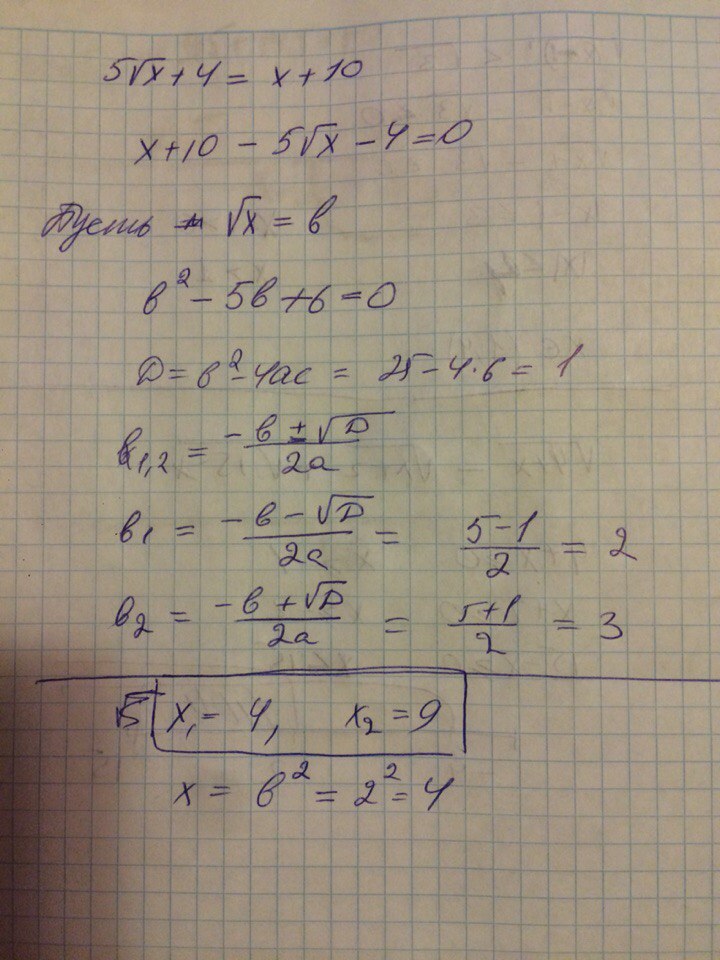 5√x + 4 = x + 10
x + 10 - 5√x - 4 = 0
Пусть √x = в
в² - 5в + 6 = 0
D = в² - 4ac = 25 - 4·6 = 1
в₁,₂ = (-в ± √D)/2a
в₁ = (-в - √D)/2a = (5-1)/2 = 2
в₂ = (-в + √D)/2a = (5+1)/2 = 3
x₁ = 4, x₂ = 9
x = в² = 2² = 4